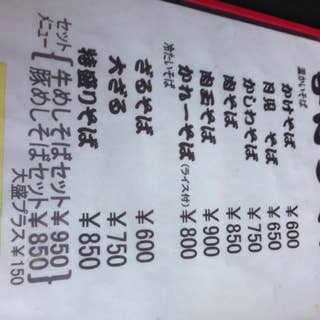 温かいそば
かけそば ¥600
月見そば ¥650
かしわそば ¥750
肉そば ¥850
肉玉そば ¥900
かれーそば(ライス付) ¥800
冷たいそば
ざるそば ¥600
大ざる ¥750
特盛りそば ¥850
セットメニュー
牛めしそばセット ¥950
豚めしそばセット ¥850
大盛プラス ¥150